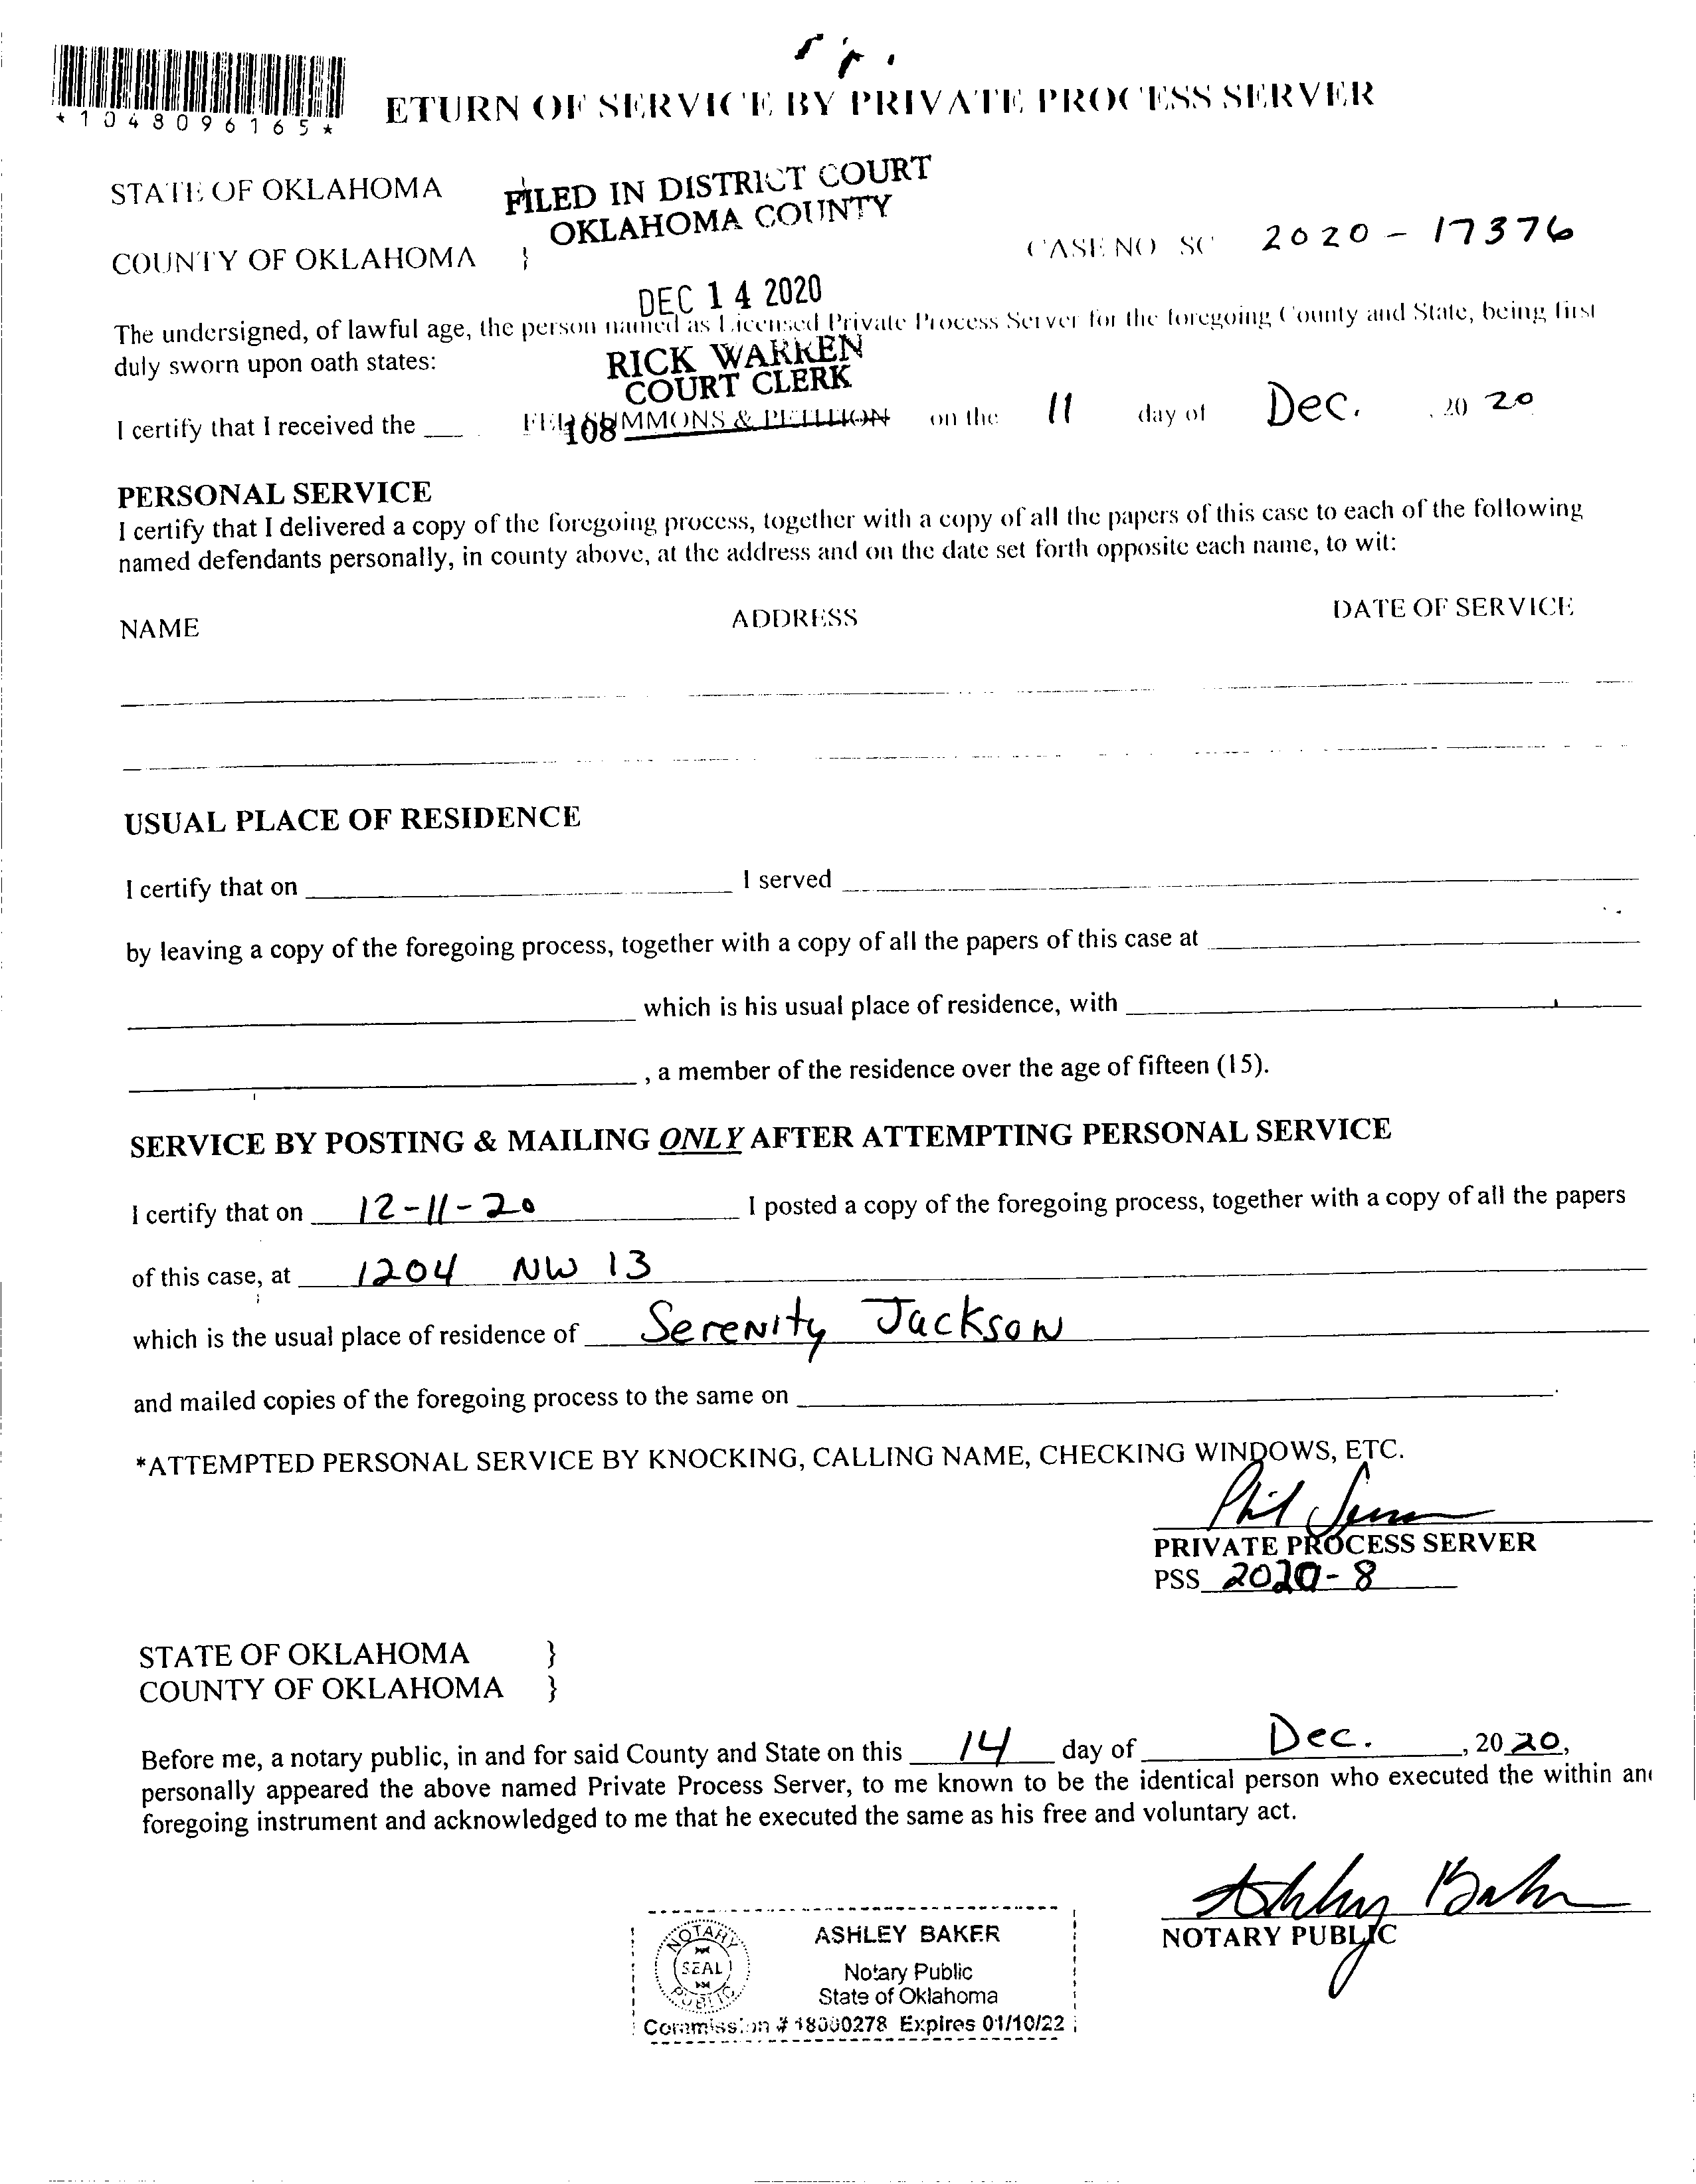 *1048096165*
ETURN OF SERVICE BY PRIVATE PROCESS SERVER
STATE OF OKLAHOMA
FILED IN DISTRICT COURT
OKLAHOMA COUNTY
COUNTY OF OKLAHOMA }
CASE NO SC 2020-17376
DEC 14 2020
The undersigned, of lawful age, the person named as Licensed Private Process Server for the foregoing County and State, being first
duly sworn upon oath states:
RICK WARREN
COURT CLERK
I certify that I received the ___ SUMMONS & PETITION on the 11 day of Dec. , 20 20
108
PERSONAL SERVICE
I certify that I delivered a copy of the foregoing process, together with a copy of all the papers of this case to each of the following
named defendants personally, in county above, at the address and on the date set forth opposite each name, to wit:
NAME ADDRESS DATE OF SERVICE
USUAL PLACE OF RESIDENCE
I certify that on ______ I served ______
by leaving a copy of the foregoing process, together with a copy of all the papers of this case at ______
______ which is his usual place of residence, with ______
______, a member of the residence over the age of fifteen (15).
SERVICE BY POSTING & MAILING ONLY AFTER ATTEMPTING PERSONAL SERVICE
I certify that on 12-11-20 I posted a copy of the foregoing process, together with a copy of all the papers
of this case, at 1204 NW 13
which is the usual place of residence of Serenity Jackson
and mailed copies of the foregoing process to the same on ______.
*ATTEMPTED PERSONAL SERVICE BY KNOCKING, CALLING NAME, CHECKING WINDOWS, ETC.
Phil
PRIVATE PROCESS SERVER
PSS 2020-8
STATE OF OKLAHOMA }
COUNTY OF OKLAHOMA }
Before me, a notary public, in and for said County and State on this 14 day of Dec. , 20 20,
personally appeared the above named Private Process Server, to me known to be the identical person who executed the within an
foregoing instrument and acknowledged to me that he executed the same as his free and voluntary act.
Ashley Baker
NOTARY PUBLIC
NOTARY
SEAL
PUBLIC
ASHLEY BAKER
Notary Public
State of Oklahoma
Commission # 18000278 Expires 01/10/22